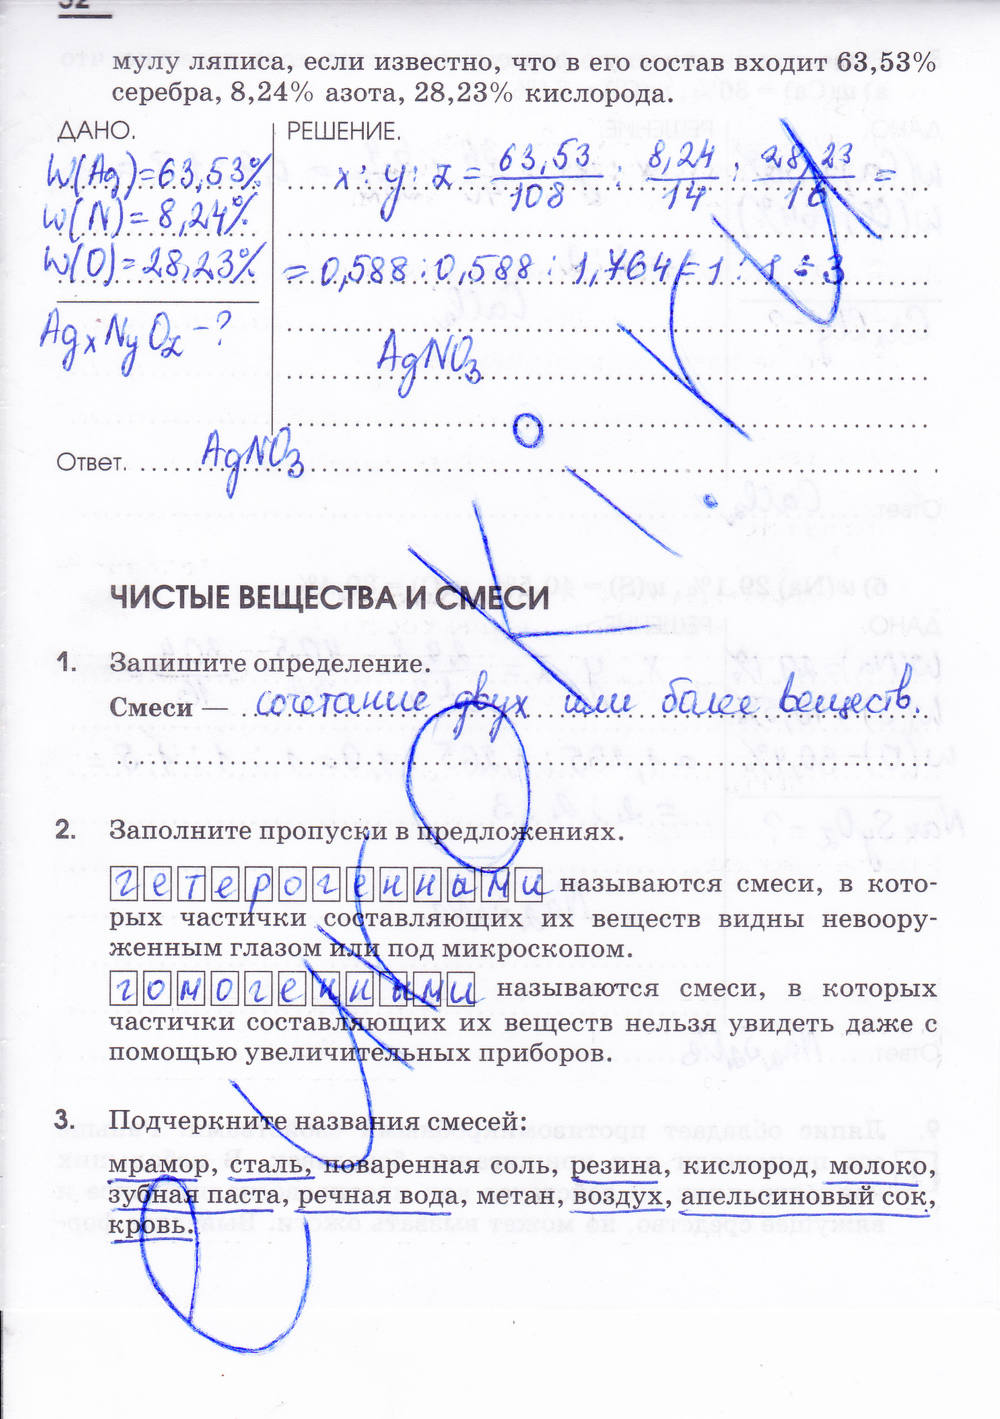 52
мулу ляписа, если известно, что в его состав входит 63,53%
серебра, 8,24% азота, 28,23% кислорода.
ДАНО.
W(Ag)=63,53%
W(N)=8,24%
W(O)=28,23%
AgxNyOz -?
РЕШЕНИЕ.
x : y : z = 63,53/108 : 8,24/14 : 28,23/16 =
= 0,588 : 0,588 : 1,764 = 1 : 1 : 3
AgNO3
Ответ. AgNO3
ЧИСТЫЕ ВЕЩЕСТВА И СМЕСИ
1. Запишите определение.
Смеси — сочетание двух или более веществ.
2. Заполните пропуски в предложениях.
гетерогеннами называются смеси, в кото-
рых частички составляющих их веществ видны невоору-
женным глазом или под микроскопом.
гомогенными называются смеси, в которых
частички составляющих их веществ нельзя увидеть даже с
помощью увеличительных приборов.
3. Подчеркните названия смесей:
мрамор, сталь, поваренная соль, резина, кислород, молоко,
зубная паста, речная вода, метан, воздух, апельсиновый сок,
кровь.